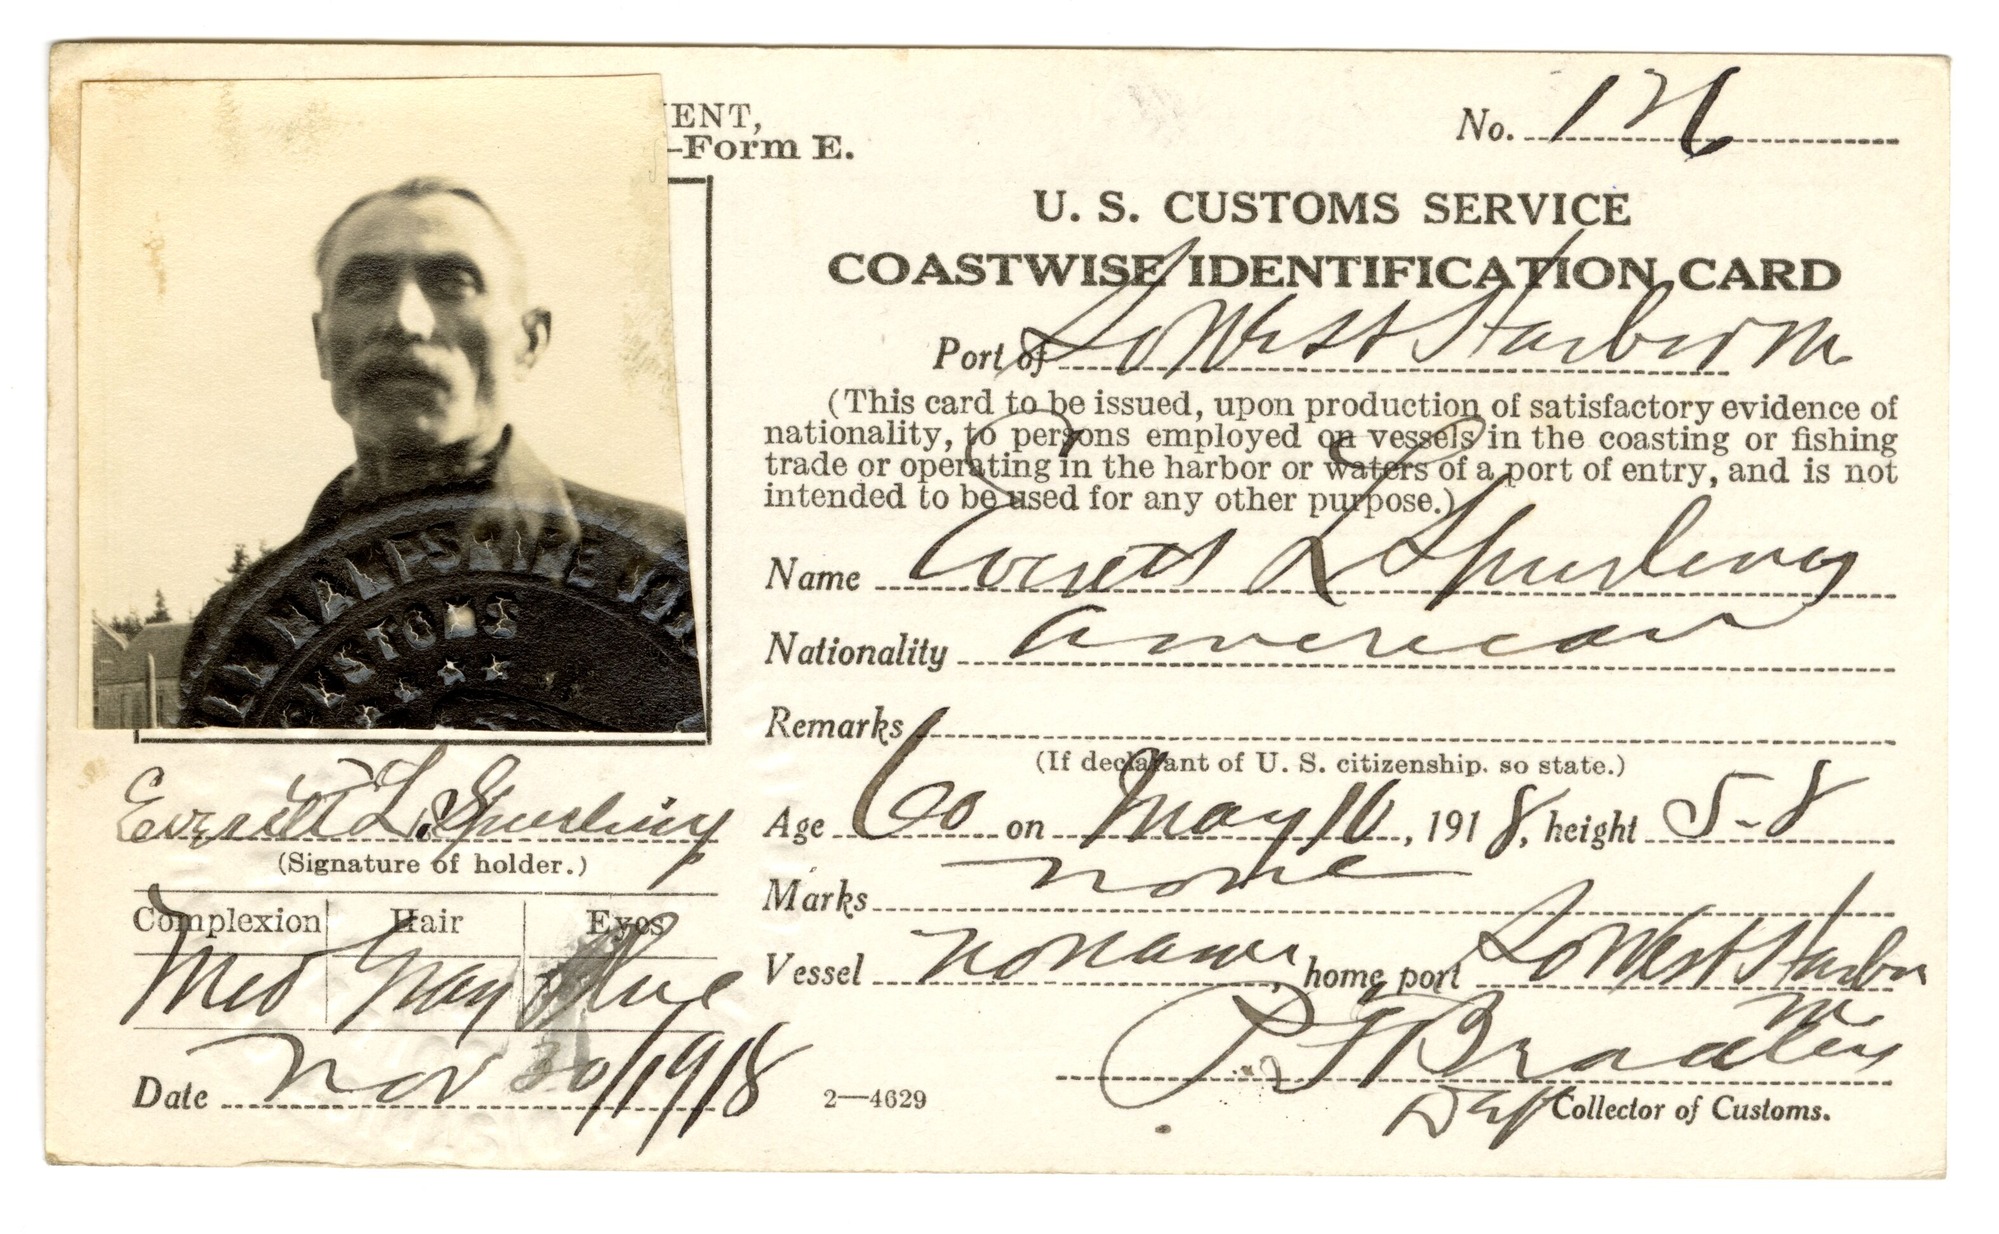 ENT,
—Form E.
No. 126
U. S. CUSTOMS SERVICE
COASTWISE IDENTIFICATION CARD
Port of So West Harbor Me
(This card to be issued, upon production of satisfactory evidence of
nationality, to persons employed on vessels in the coasting or fishing
trade or operating in the harbor or waters of a port of entry, and is not
intended to be used for any other purpose.)
Name Everett L Spurling
Nationality American
Remarks
(If declarant of U. S. citizenship, so state.)
Age 60 on May 16, 1918, height 5-8
Marks none
Vessel no name, home port So West Harbor
Me
CUSTOMS
Everett L. Spurling
(Signature of holder.)
Complexion Hair Eyes
Med Gray Blue
Date Nov 30/1918
2—4629
Dep Collector of Customs.